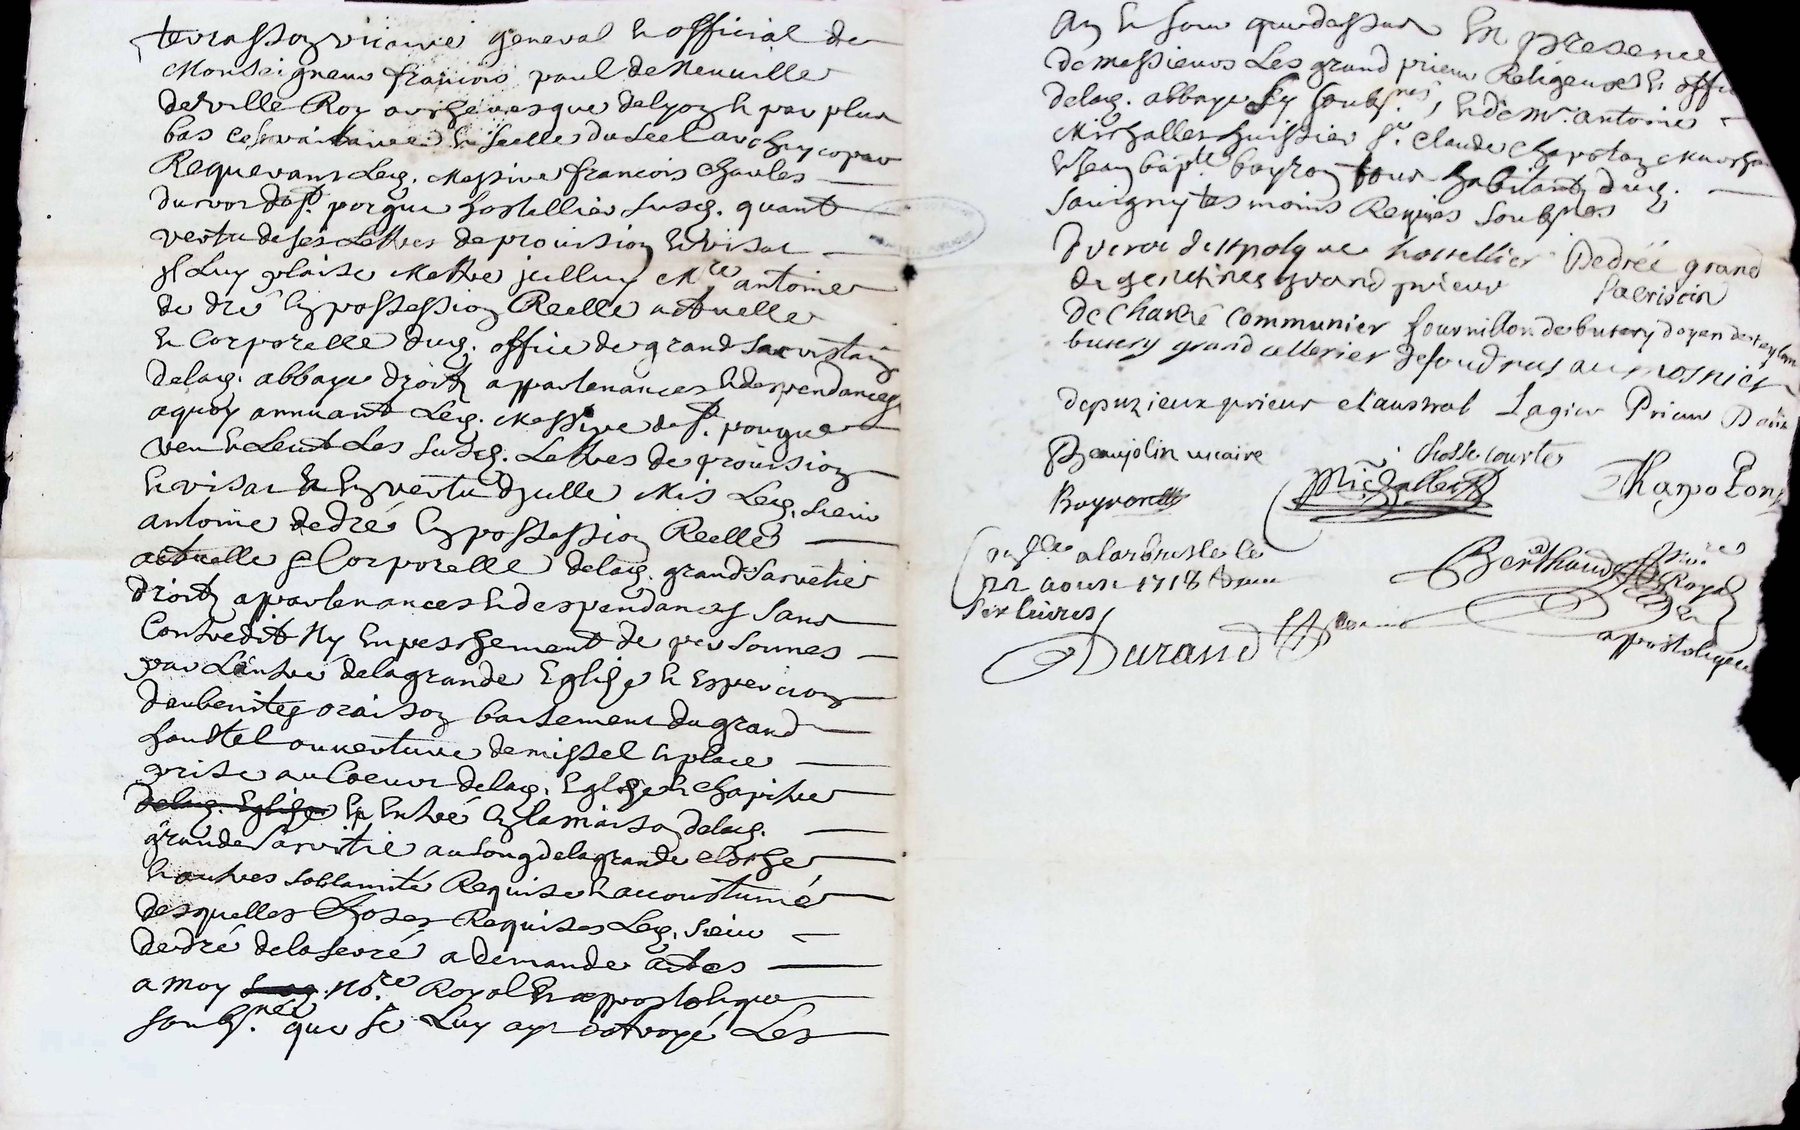 terrasson vicaire general & official de
Monseigneur francois paul de Neuuille
deville Roy archevesque de lyon & par plus
bas & scellé du scel archi
Requerant led. Messire francois charles
du de St. porgue hostellier susd. quant
vertu de ses Lettres de prouision & visa
Il Luy plaise Mettre jcelluy Mre antoine
de dré en possession Reelle actuelle
& Corporelle dud. office de grand sacristain
de lad. abbaye droits appartenances & despendances
a quoy annuant Led. Messire de St. pourgue
veu & Leut Les susd. Lettres de prouision
& visa & en vertu d'jcelle Mis Led. sieur
antoine de dré en possession Reelle
actuelle & Corporelle de lad. grand Sacristie
droits appartenances & despendances sans
Contredit Ny Empeschement de personnes
par L'entré de la grande Eglise & espercion
d'eau benite oraison baisement du grand
hautel ouuerture de missel & place
prise au Coeur de lad. Eglise & chapitre
de lad. Eglise & Entré en la maison de lad.
grande Sacristie au song de la grande clôche
& autres sollamité Requise & accoustumé
desquelles choses Requises Led. sieur
de dré de la serré a demande actes
a moy susd. Nore. Royal & appostolique
soubsnée. que je Luy ay octroyé Les
An & Jour que dessus En presence
de messieurs Les grand prieur Religieux & offi
de lad. abbaye sy soubsnés, & de Mr. antoine
Michallet huissier Sr. Claude Chapotton Marcha
& Jean bapte. bayron tous habitants dud.
Sauigny tesmoins Requis soubsnés
de st polgue hostellier Dedréé grand
de gerentines grand prieur sacristin
De Charé communier fournillon de butery doyen de teylan
butery grand cellerier de foudras aumosnier
depuzieux prieur claustral Lagier Prieur
Beaujolin uicaire chossecourte
Bayron Michallet Chapoton
Con.lle a larbresle le Berthaud Nore
22 aoust 1718 Royal
six liures &
Durand apostolique